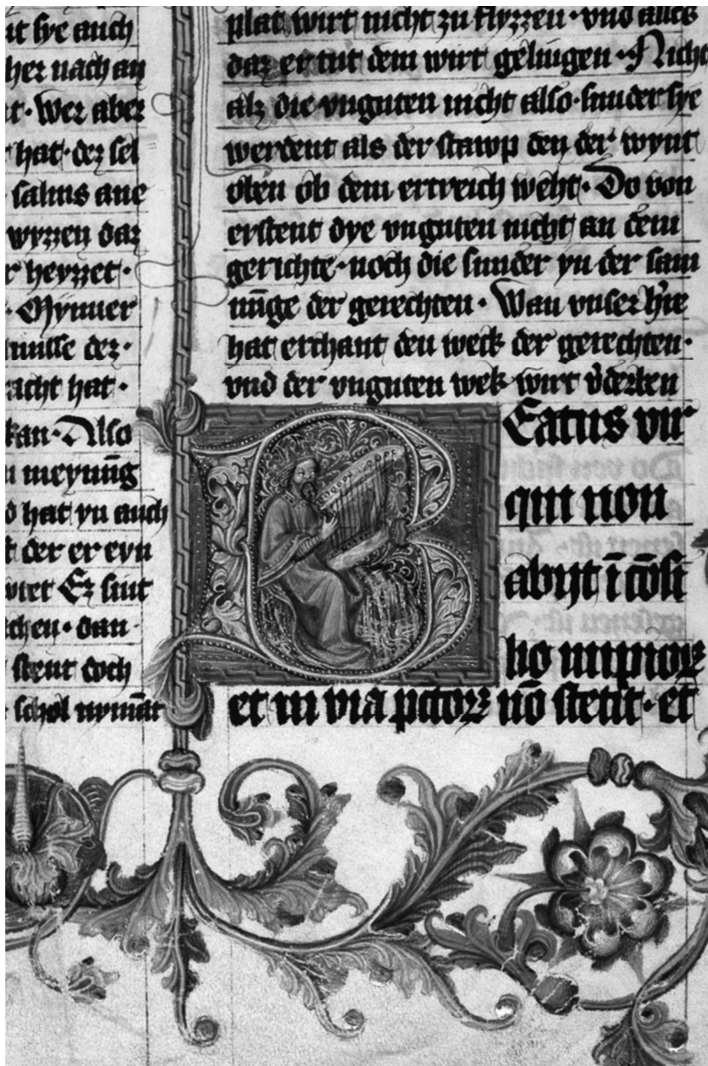 it sye auch
her nach an
t · Wer aber
hat · der sel
salms ane
wyzzen daz
r heyzzet ·
· Mynner
nusse der ·
acht hat ·
kan · Also
n meynūg
d hat yn auch
t der er eyn
wiet Ez sint
chen · dan
stent doch
schol nymāt
plat wirt nicht zu flyzzen · vnd alles
daz er tut dem wirt gelingen · Nicht
alz die vnguten nicht also · sunder sye
werdent als der stawp den der wynt
oben ob dem ertreich weht · Do von
erstent dye vnguten nicht an dem
gerichte · noch die sunder yn der sam
nūge der gerechten · Wan vnser h̄re
hat erchant den weck der gerechten ·
vnd der vnguten wek wirt v̄derben
Beatus vir
qui non
abijt ī cōsi
lio impioꝝ
et in via pctoꝝ nō stetit · et